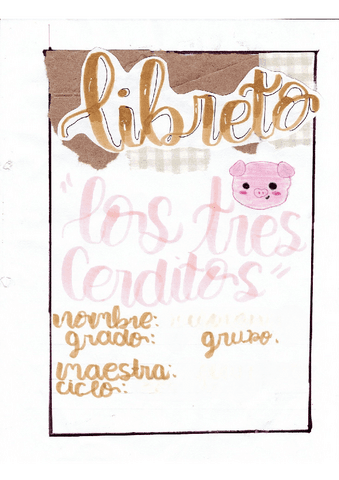 libreto
"los tres
Cerditos"
nombre:
grado: grupo.
maestra:
ciclo: